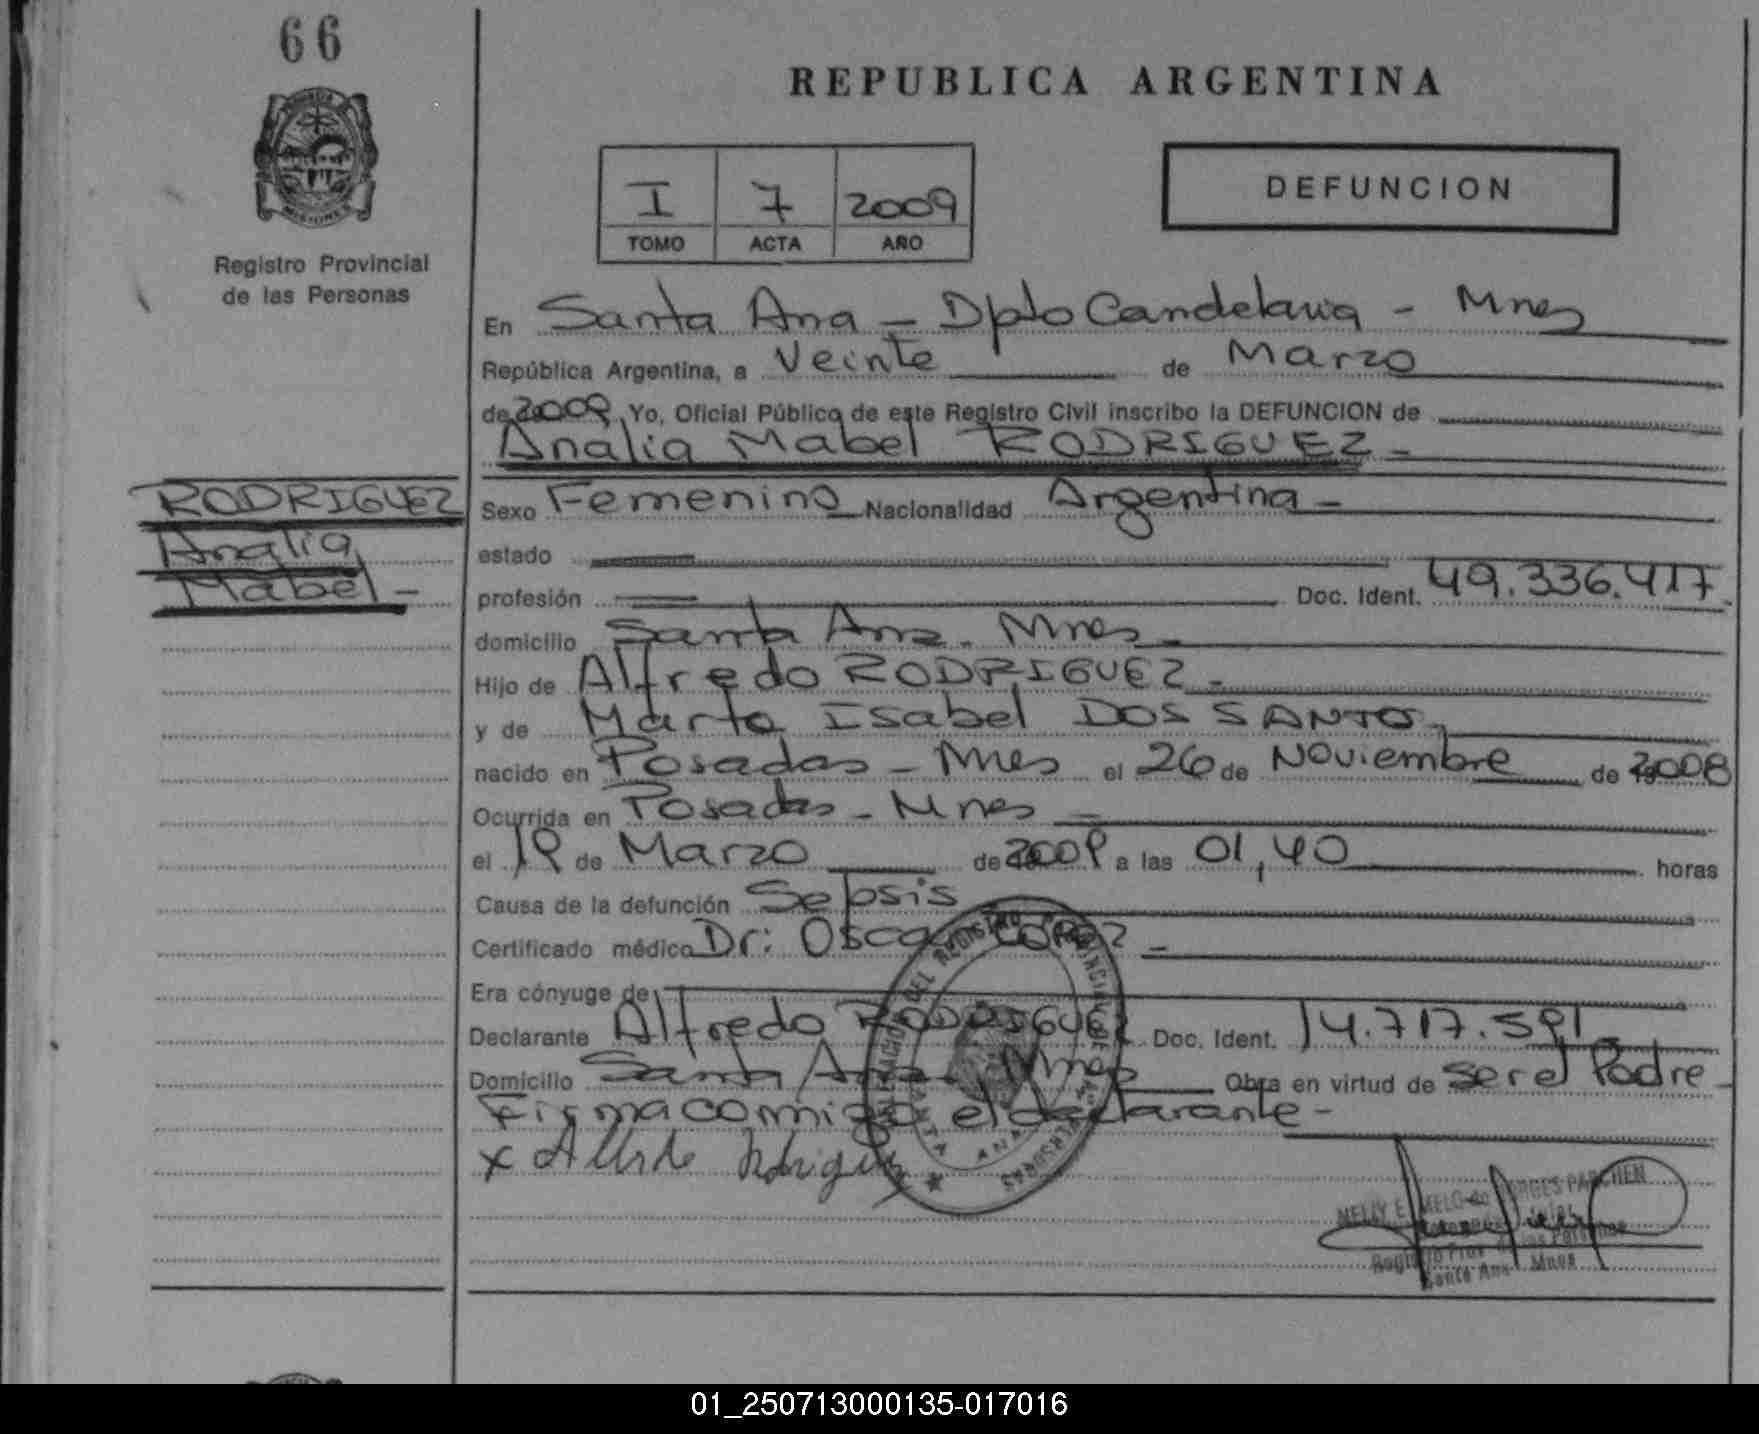 66
MISIONES
Registro Provincial
de las Personas
REPUBLICA ARGENTINA
I 7 2009
TOMO ACTA AÑO
DEFUNCION
En Santa Ana - Dpto Candelaria - Mnes
República Argentina, a Veinte de Marzo
de 2009 Yo, Oficial Público de este Registro Civil inscribo la DEFUNCION de
Analia Mabel RODRIGUEZ -
RODRIGUEZ
Analia
Mabel -
Sexo Femenino Nacionalidad Argentina -
estado
profesión Doc. Ident. 49.336.417
domicilio Santa Ana - Mnes -
Hijo de Alfredo RODRIGUEZ -
y de Marta Isabel DOS SANTOS
nacido en Posadas - Mnes el 26 de Noviembre de 2008
Ocurrida en Posadas - Mnes -
el 19 de Marzo de 2009 a las 01,40 horas
Causa de la defunción Sepsis
Certificado médico Dr: Oscar -
Era cónyuge de
Declarante Alfredo RODRIGUEZ Doc. Ident. 14.717.591
Domicilio Santa Ana - Mnes Obra en virtud de Ser el Padre -
Firma conmigo el declarante -
x Alfredo Rodriguez
NELLY E. MELO de BORGES PARCHEN
Registro Prov. de las Personas
Santa Ana Mnes
01_250713000135-017016